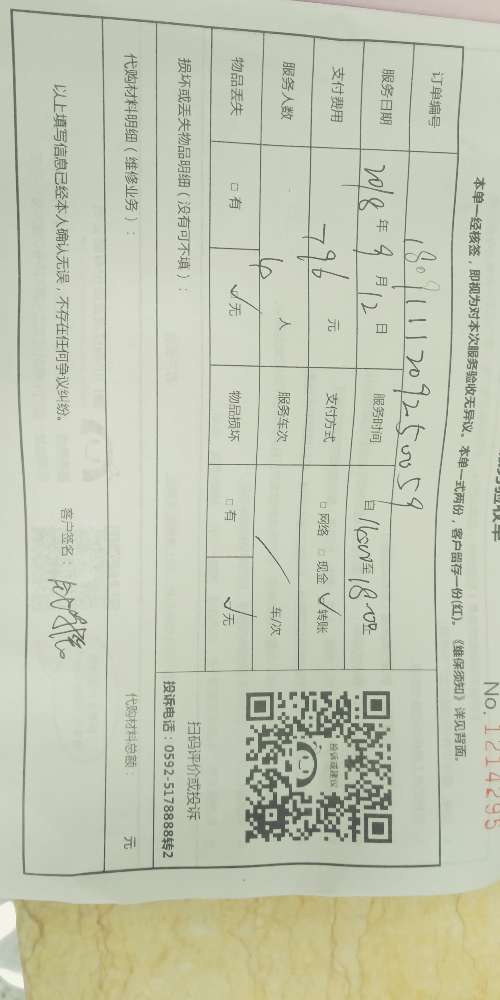 验收单
No. 1214295
本单一经核签，即视为对本次服务验收无异议。本单一式两份，客户留存一份(红)。《维保须知》详见背面。
订单编号
服务日期 2018 年 9 月 12 日 服务时间 自 至 18:00止
支付费用 796 元 支付方式 □ 网络 □ 现金 ✓ 转账
服务人数 人 服务车次 / 车/次
物品丢失 □ 有 ✓ 无 物品损坏 □ 有 ✓ 无
损坏或丢失物品明细（没有可不填）：
投诉或建议
扫码评价或投诉
投诉电话：0592-5178888转2
代购材料明细（维修业务）：
代购材料总额： 元
以上填写信息已经本人确认无误，不存在任何争议纠纷。
客户签名：